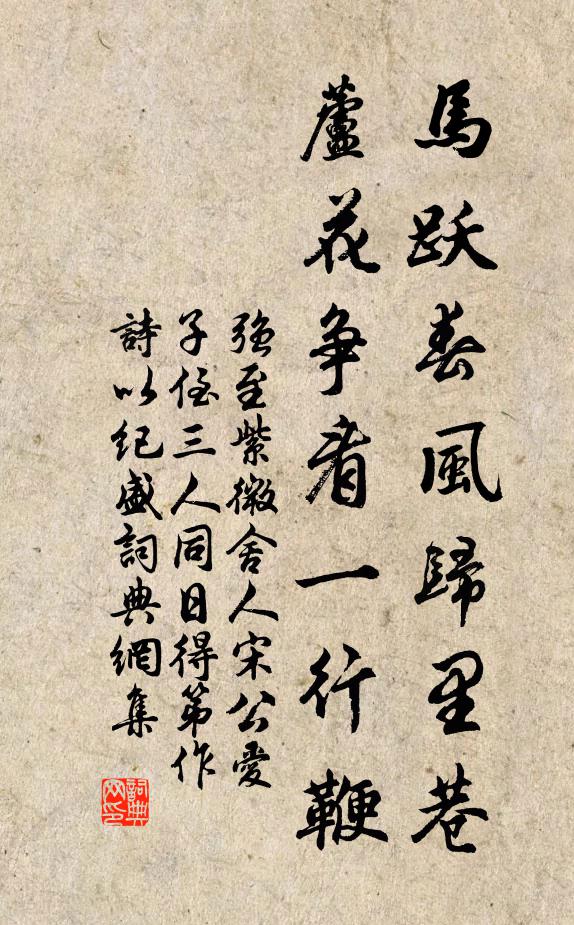 馬跃春風歸里巷
蘆花争看一行鞭
强至紫微舍人宋公愛
子侄三人同日得第作
詩以纪盛詞典網集
詞典网印